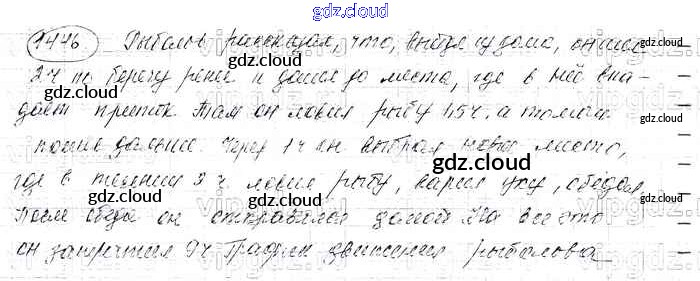 gdz.cloud
1446 Рыбалов рассказал, что, выйдя из дома, он шел
2 ч по берегу реки и дошел до места, где в неё впа-
дает приток. Там он ловил рыбу 1,5 ч. а потом
gdz.cloud
пошел дальше. Через 1 ч он выбрал новое место,
gdz.cloud
где в течении 3 ч. ловил рыбу, варил уху, обедал.
gdz.cloud
После обеда он отправился домой На все это
он затратил 9 ч. График движения рыбалова
gdz.cloud